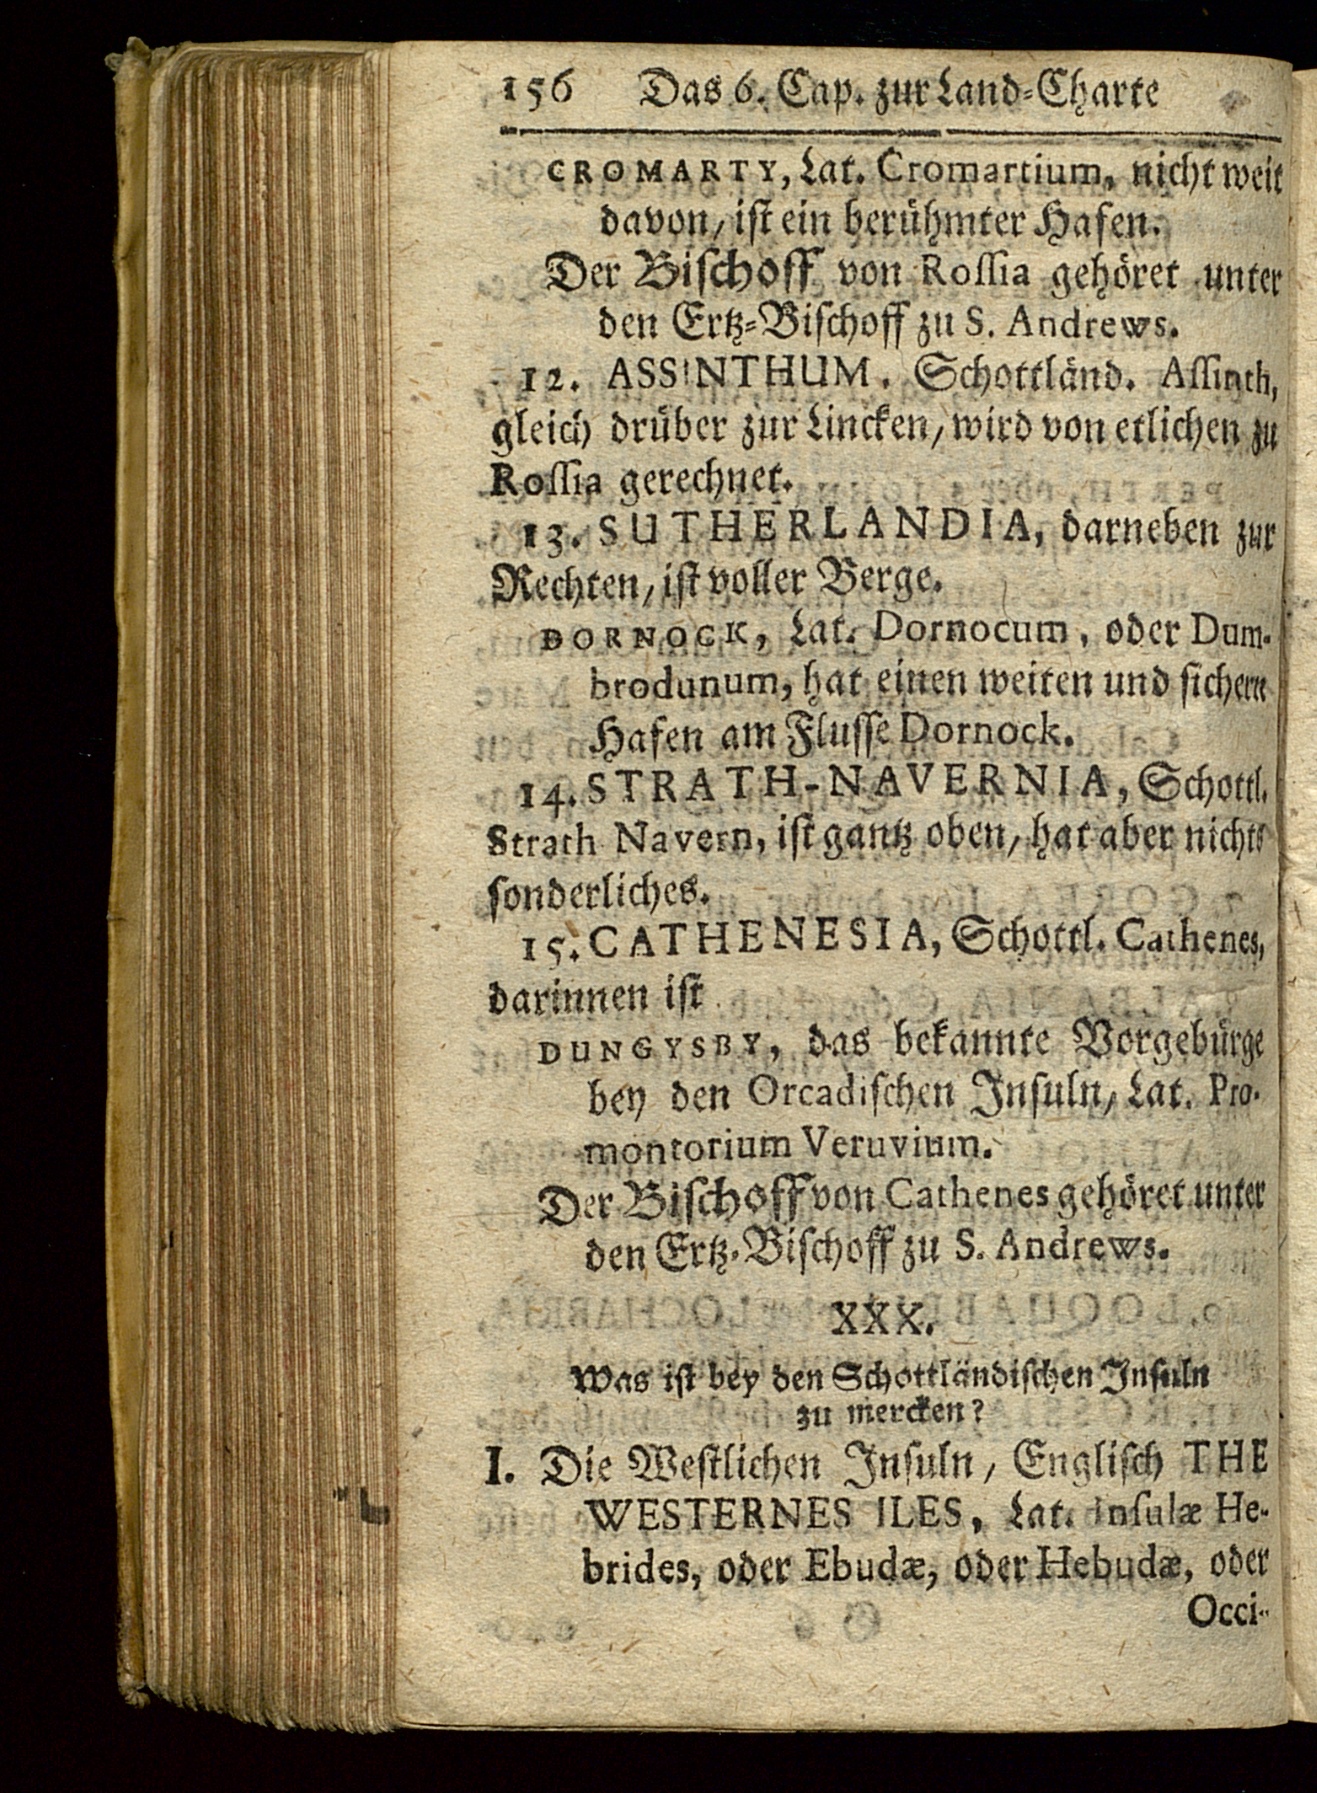 156 Das 6. Cap. zur Land-Charte
CROMARTY, Lat. Cromartium, nicht weit
davon, ist ein berühmter Hafen.
Der Bischoff von Rossia gehöret unter
den Ertz-Bischoff zu S. Andrews.
12. ASSINTHUM. Schottländ. Assinth,
gleich drüber zur Lincken, wird von etlichen zu
Rossia gerechnet.
13. SUTHERLANDIA, darneben zur
Rechten, ist voller Berge.
DORNOCK, Lat. Dornocum, oder Dum-
brodunum, hat einen weiten und sichern
Hafen am Flusse Dornock.
14. STRATH-NAVERNIA, Schottl.
Strath Navern, ist gantz oben, hat aber nichts
sonderliches.
15. CATHENESIA, Schottl. Cathenes,
darinnen ist
DUNGYSBY, das bekannte Vorgebürge
bey den Orcadischen Insuln, Lat. Pro-
montorium Veruvium.
Der Bischoff von Cathenes gehöret unter
den Ertz-Bischoff zu S. Andrews.
XXX.
Was ist bey den Schottländischen Insuln
zu mercken?
I. Die Westlichen Insuln, Englisch THE
WESTERNES ILES, Lat. Insulæ He-
brides, oder Ebudæ, oder Hebudæ, oder
Occi-